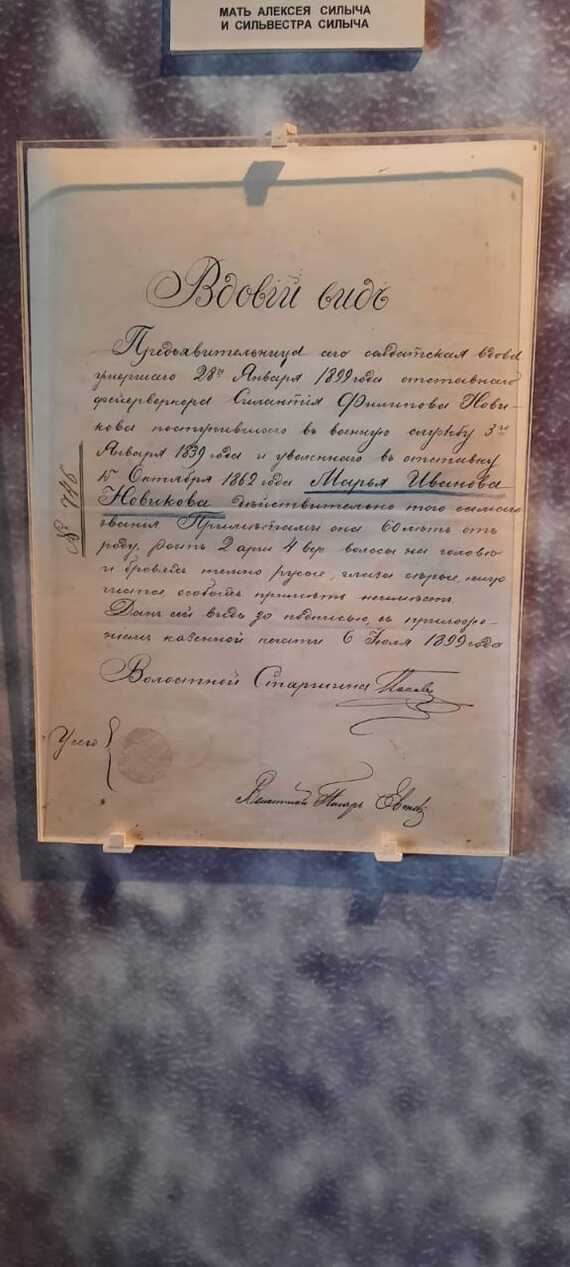 МАТЬ АЛЕКСЕЯ СИЛЫЧА
И СИЛЬВЕСТРА СИЛЫЧА
Вдовій видъ
Предъявительница сего солдатская вдова
умершаго 28го Января 1899 года отставнаго
фейерверкера Силантія Филипова Нови-
кова поступившаго въ военную службу 3го
Января 1839 года и уволеннаго въ отставку
15 Октября 1862 года Марья Иванова
Новикова дѣйствительно того самаго
званія Примѣтами она 60 лѣтъ отъ
роду, ростъ 2 арш 4 вер волоса на головѣ
и бровяхъ темно русые, глаза сѣрые, лицо
чистое особыхъ примѣтъ неимѣетъ.
Данъ сей видъ за подписью, съ приложе-
ніемъ казенной печати 6 Іюля 1899 года
№ 746
Волостной Старшина
У сего
Волостной Писарь